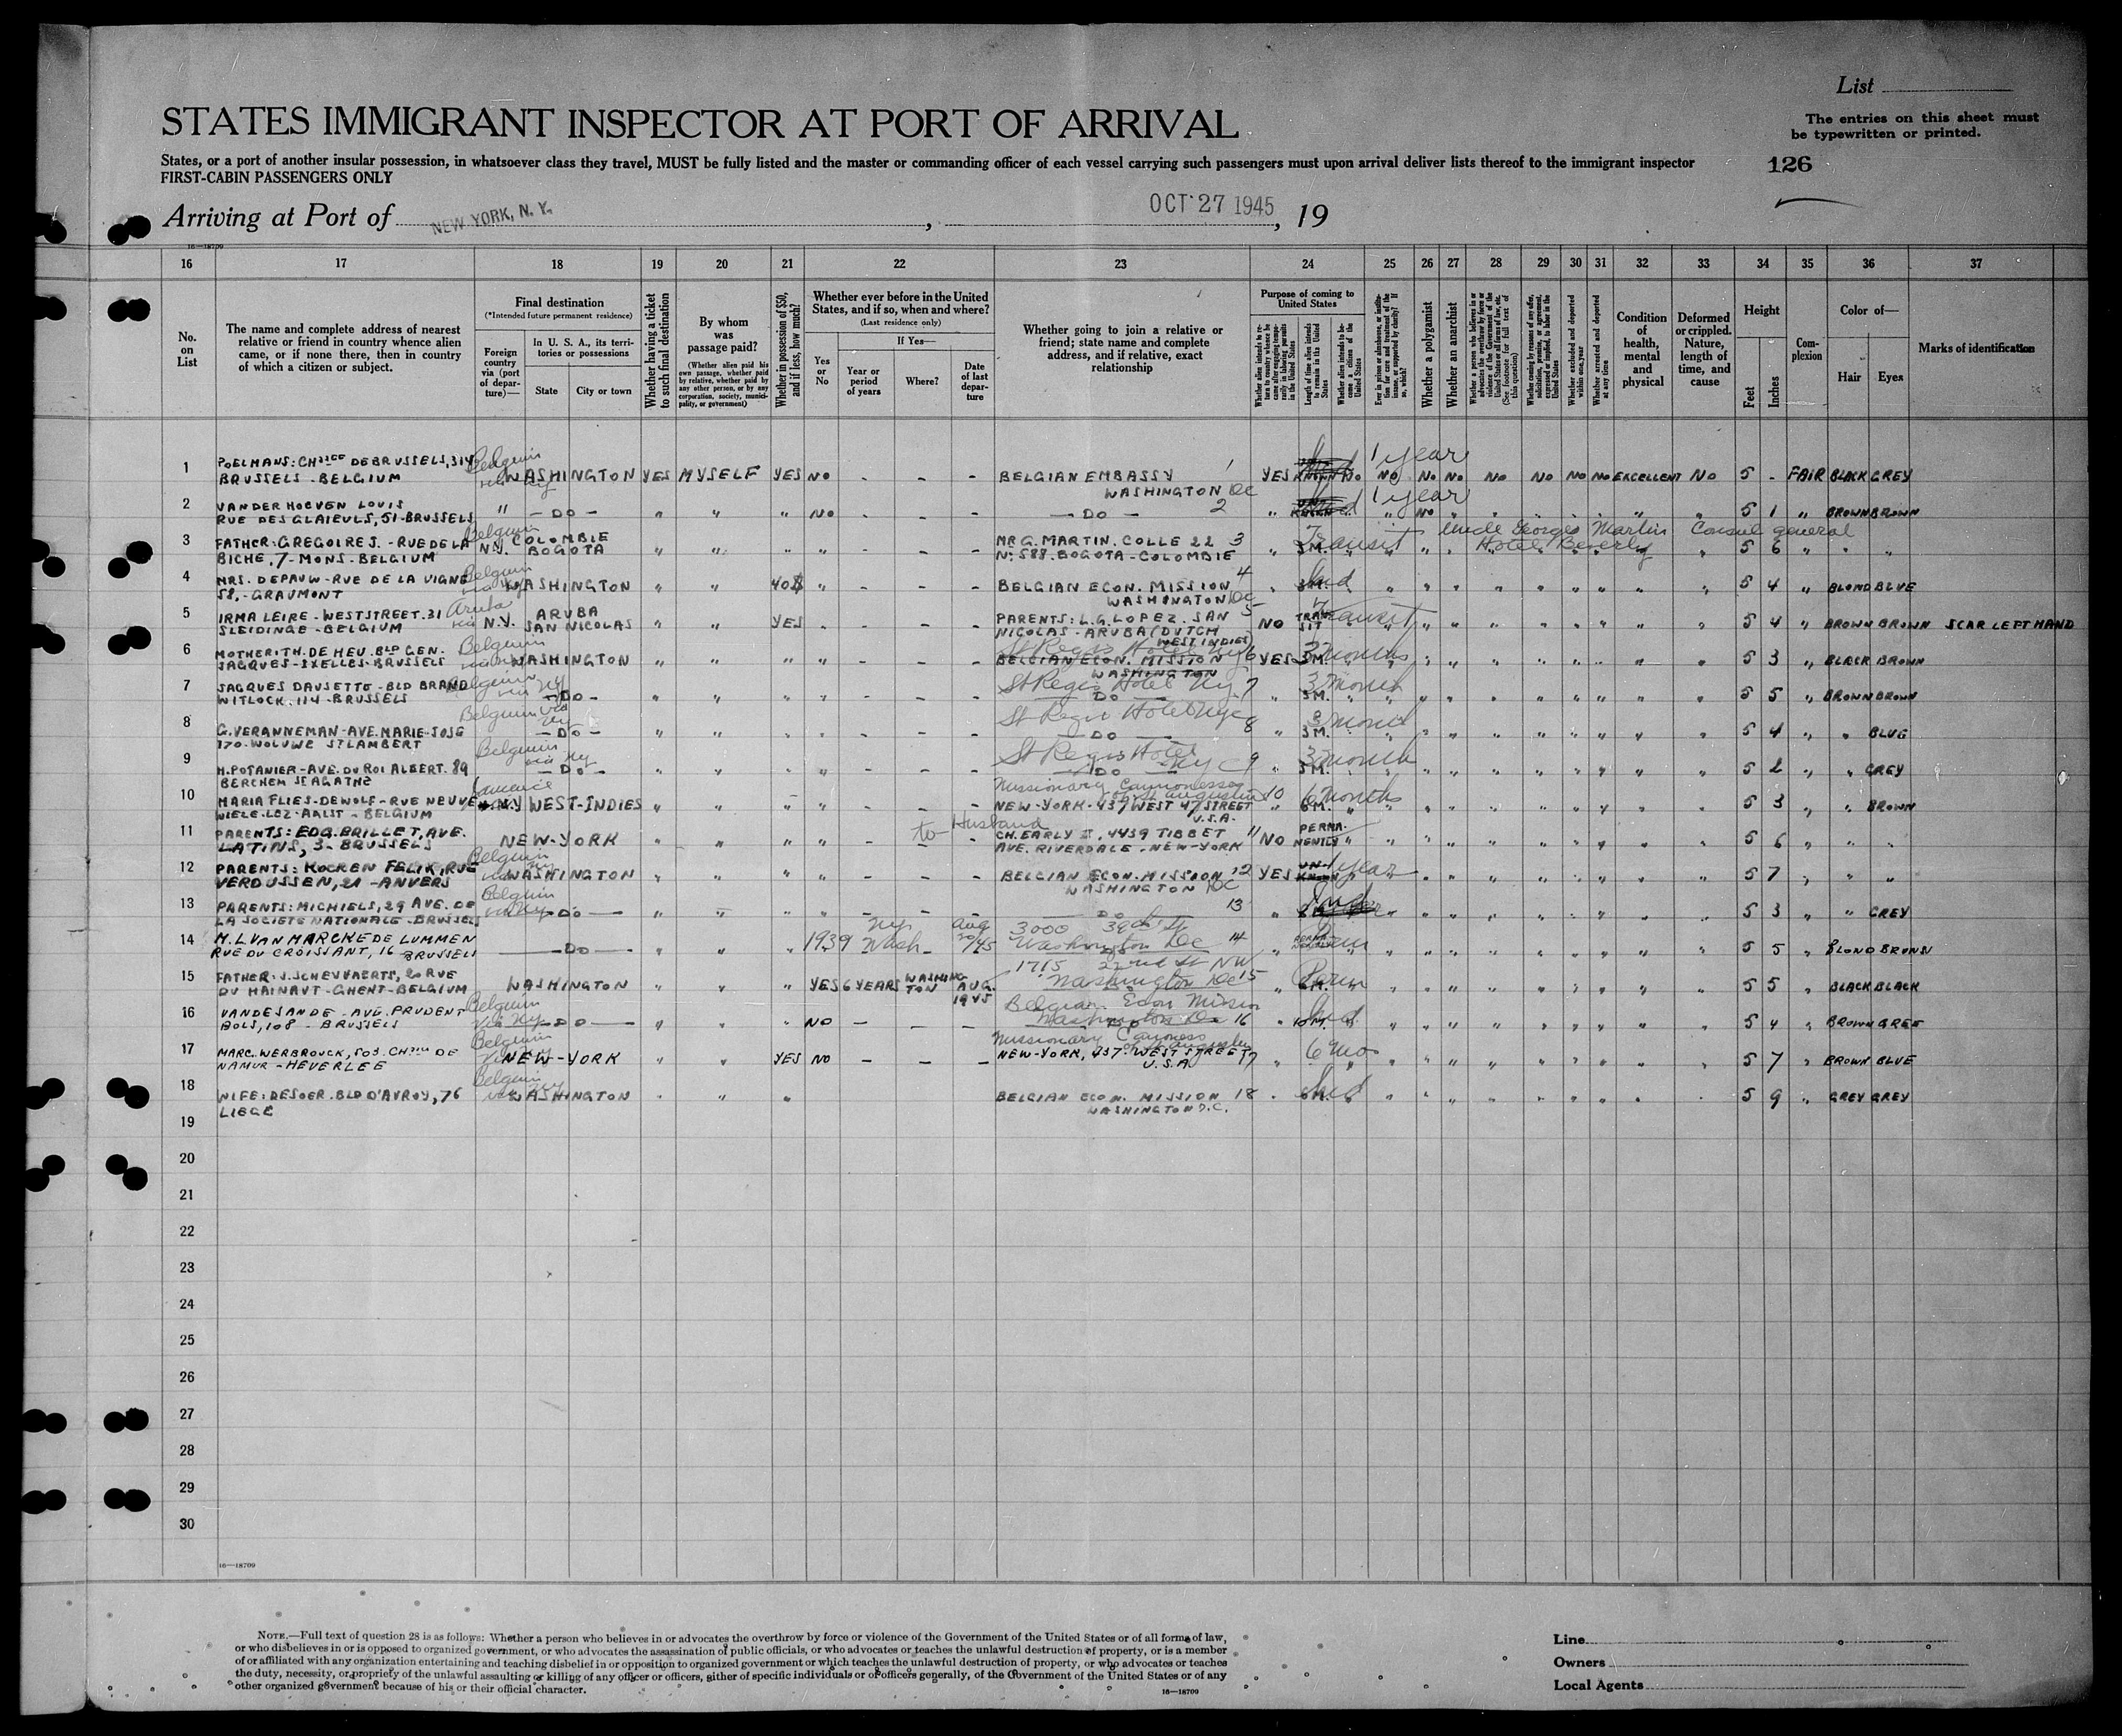 List
STATES IMMIGRANT INSPECTOR AT PORT OF ARRIVAL
The entries on this sheet must
be typewritten or printed.
States, or a port of another insular possession, in whatsoever class they travel, MUST be fully listed and the master or commanding officer of each vessel carrying such passengers must upon arrival deliver lists thereof to the immigrant inspector
FIRST-CABIN PASSENGERS ONLY
126
Arriving at Port of NEW YORK, N. Y. , OCT 27 1945 , 19
16—18709
16 17 18 19 20 21 22 23 24 25 26 27 28 29 30 31 32 33 34 35 36 37
No. on List
The name and complete address of nearest relative or friend in country whence alien came, or if none there, then in country of which a citizen or subject.
Final destination
(*Intended future permanent residence)
Foreign country via (port of departure)—
In U. S. A., its territories or possessions
State
City or town
Whether having a ticket to such final destination
By whom was passage paid?
(Whether alien paid his own passage, whether paid by relative, whether paid by any other person, or by any corporation, society, municipality, or government)
Whether in possession of $50, and if less, how much?
Whether ever before in the United States, and if so, when and where?
(Last residence only)
Yes or No
If Yes—
Year or period of years
Where?
Date of last departure
Whether going to join a relative or friend; state name and complete address, and if relative, exact relationship
Purpose of coming to United States
Length of time alien intends to remain in the United States
Whether alien intends to become a citizen of the United States
Whether a polygamist
Whether an anarchist
(See footnote for full text of this question)
Whether excluded and deported within one year
Whether arrested and deported at any time
Condition of health, mental and physical
Deformed or crippled. Nature, length of time, and cause
Height
Feet
Inches
Complexion
Color of—
Hair
Eyes
Marks of identification
1 POELMANS: CHSSEE DE BRUSSELS, 314 Belgium WASHINGTON YES MYSELF YES NO - - - BELGIAN EMBASSY 1 YES NO 1 year NO NO NO NO NO NO NO EXCELLENT NO 5 - FAIR BLACK GREY
BRUSSELS - BELGIUM WASHINGTON DC
2 VANDER HOEVEN LOUIS " - DO - " " " NO - - - - DO - 2 1 year NO 5 1 " BROWN BROWN
RUE DES GLAIEULS, 51-BRUSSELS
3 FATHER: GREGOIRE J. - RUE DE LA Belgium COLOMBIE MR G. MARTIN. COLLE 22 3 Transit Uncle Georges Martin Consul general
BICHE, 7-MONS-BELGIUM N.Y. BOGOTA N: 588. BOGOTA - COLOMBIE Hotel Beverly 5 6 " " "
4 MRS. DEPAUW-RUE DE LA VIGNE Belgium WASHINGTON " " 40$ " - - - BELGIAN ECON. MISSION 4 5 4 " BLOND BLUE
58, - GRAUMONT WASHINGTON DC
5 IRMA LEIRE - WESTSTREET. 31 Aruba ARUBA PARENTS: L.G. LOPEZ. SAN 5 TRANSIT Transit
SLEIDINGE - BELGIUM via N.Y. SAN NICOLAS " " YES NICOLAS - ARUBA (DUTCH WEST INDIES) NO 5 4 " BROWN BROWN SCAR LEFT HAND
6 MOTHER: TH. DE HEU. BLD GEN. Belgium St Regis Hotel
JACQUES-IXELLES-BRUSSELS WASHINGTON " " " " - - - BELGIAN ECON. MISSION 6 YES 3M. 3 months 5 3 " BLACK BROWN
WASHINGTON
7 JACQUES DAUSETTE-BLD BRAND Belgium via NY St Regis Hotel NY 7 3 month
WITLOCK. 114 - BRUSSELS - DO - - DO - 3M. 5 5 " BROWN BROWN
8 G. VERANNEMAN-AVE. MARIE-JOSE Belgium via NY - DO - St Regis Hotel NYC 8 3M. 3 month 5 4 " " BLUE
170-WOLUWE ST LAMBERT - DO -
9 H. POTANIER-AVE. DU ROI ALBERT. 89 Belgium via NY - DO - St Regis Hotel NYC 9 3M. 3 month 5 2 " " GREY
BERCHEM STE AGATHE - DO -
10 MARIA FLIES-DEWOLF-RUE NEUVE N.Y WEST-INDIES Missionary Canonesses of St Augustine 10 6M. 6 months 5 3 " " BROWN
AALST - BELGIUM NEW-YORK-437 WEST 47 STREET U.S.A.
11 PARENTS: EDG. BRILLET, AVE. NEW-YORK to Husband CH. EARLY II, 4439 TIBBET 11 NO PERMANENTLY 5 6 " " "
LATINS, 3-BRUSSELS AVE. RIVERDALE-NEW-YORK
12 PARENTS: KOCKEN FELIX, RUE Belgium WASHINGTON BELGIAN ECON. MISSION 12 YES 1 year 5 7 " " "
VERDUSSEN, 21 - ANVERS WASHINGTON DC
13 PARENTS: MICHIELS, 29 AVE. DE Belgium via NY - DO - - DO - 13 5 3 " " GREY
LA SOCIETE NATIONALE-BRUSSELS
14 M. L VAN MARCKE DE LUMMEN - DO - 1939 NY Wash Aug 30/45 3000 39th St 14 Perm 5 5 " BLOND BROWN
RUE DU CROISSANT, 16 BRUSSELS Washington DC
15 FATHER: J. SCHEVVAERTS, 20 RUE WASHINGTON " " " YES 6 YEARS WASHINGTON AUG. 1945 1715 22nd St NW 15 Perm 5 5 " BLACK BLACK
DU HAINAUT-GHENT-BELGIUM Washington DC
16 VANDESANDE - AVE. PRUDENT Belgium via NY - DO - " " " NO - - - Belgian Econ Mission 16 10M. 5 4 " BROWN GREE
BOLS, 108 - BRUSSELS Washington DC
17 MARC. WERBROUCK, 503. CHSSEE DE Belgium NEW-YORK " " YES NO - - - Missionary Canoness of St Augustin 6 mo 5 7 " BROWN BLUE
NAMUR-HEVERLEE NEW-YORK, 437-WEST STREET 17 U.S.A
18 WIFE: DESOER. BLD D'AVROY, 76 Belgium via NY WASHINGTON " " " BELGIAN ECON. MISSION 18 5 9 " GREY GREY
LIEGE WASHINGTON D.C.
19
20
21
22
23
24
25
26
27
28
29
30
16—18709
NOTE.—Full text of question 28 is as follows: Whether a person who believes in or advocates the overthrow by force or violence of the Government of the United States or of all forms of law,
or who disbelieves in or is opposed to organized government, or who advocates the assassination of public officials, or who advocates or teaches the unlawful destruction of property, or is a member
of or affiliated with any organization entertaining and teaching disbelief in or opposition to organized government or which teaches the unlawful destruction of property, or who advocates or teaches
the duty, necessity, or propriety of the unlawful assaulting or killing of any officer or officers, either of specific individuals or of officers generally, of the Government of the United States or of any
other organized government because of his or their official character.
16—18709
Line
Owners
Local Agents